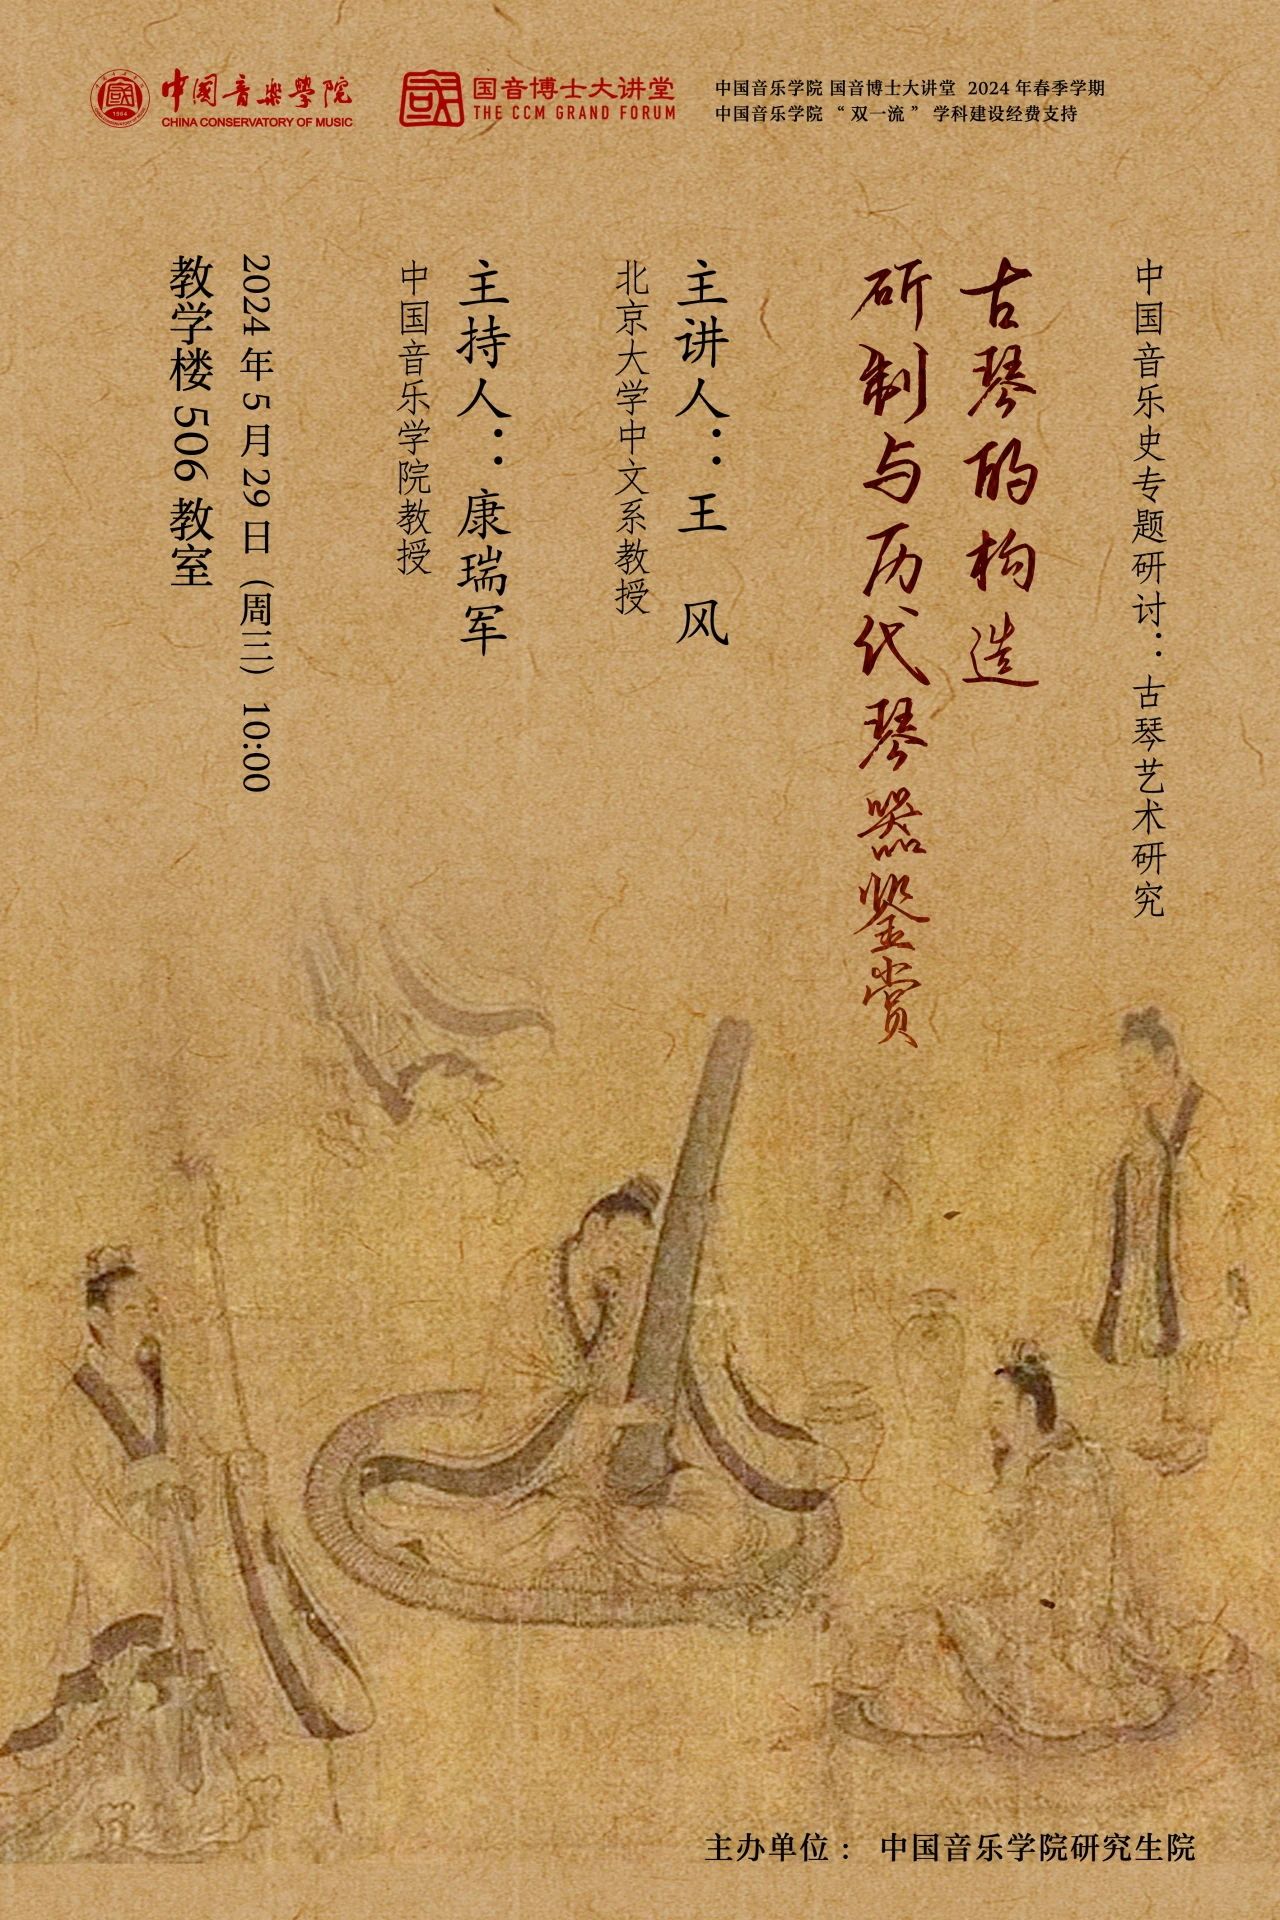 中国音乐学院
CHINA CONSERVATORY OF MUSIC
1964
国音博士大讲堂
THE CCM GRAND FORUM
中国音乐学院 国音博士大讲堂 2024 年春季学期
中国音乐学院 “ 双一流 ” 学科建设经费支持
中国音乐史专题研讨：古琴艺术研究
古琴的构造
斫制与历代琴器鉴赏
主讲人：王 风
北京大学中文系教授
主持人：康瑞军
中国音乐学院教授
2024 年 5 月 29 日（周三）10:00
教学楼 506 教室
主办单位： 中国音乐学院研究生院